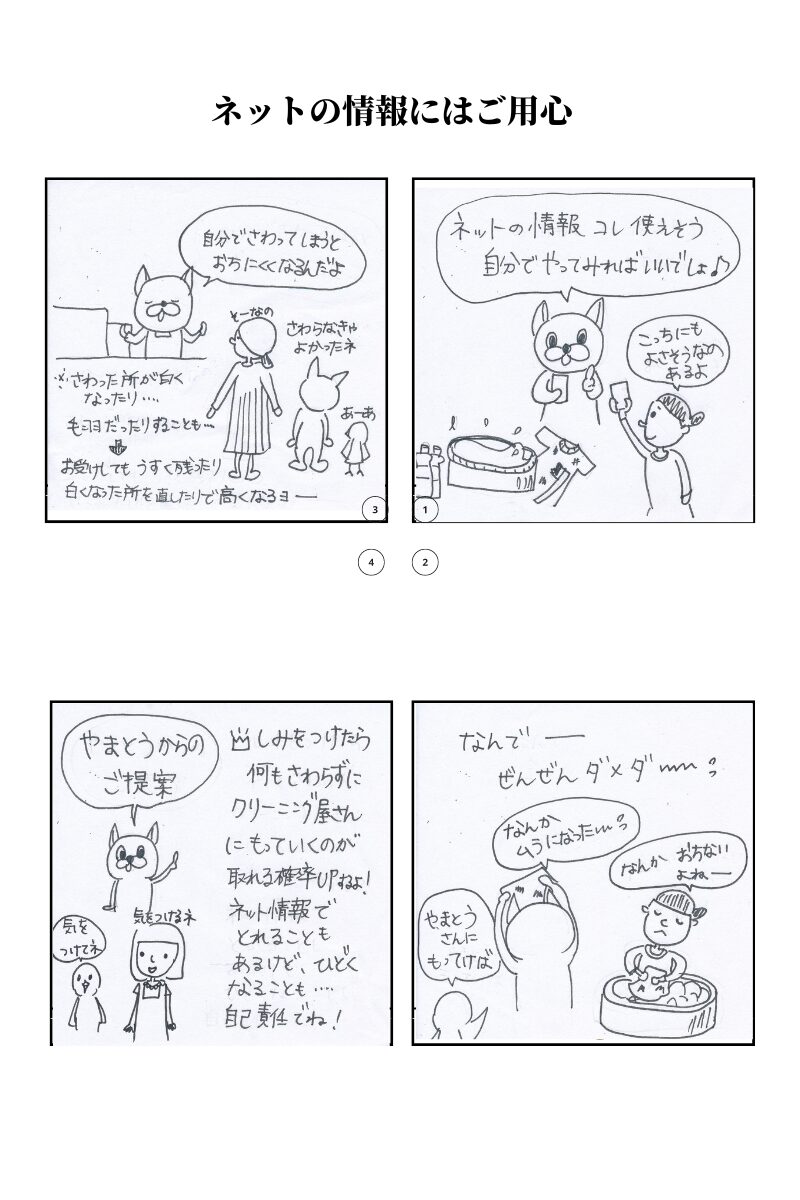 ネットの情報にはご用心
ネットの情報 コレ 使えそう
自分でやってみればいいでしょ♪
こっちにも
よさそうなの
あるよ
1
2
なんで ー
ぜんぜん ダメダ
なんか
ムラになった
なんか おちない
よねー
やまとう
さんに
もってけば
自分でさわってしまうと
おちにくくなるんだよ
そーなの
さわらなきゃ
よかったネ
あーあ
さわった所が白く
なったり‥‥
毛羽だったりすることも…
お受けしても うすく残ったり
白くなった所を直したりで高くなるヨー
3
4
やまとうからの
ご提案
気を
つけてネ
気をつけるネ
しみをつけたら
何もさわらずに
クリーニング屋さん
にもっていくのが
取れる確率UPするよ!
ネット情報で
とれることも
あるけど、ひどく
なることも‥‥
自己責任でね!